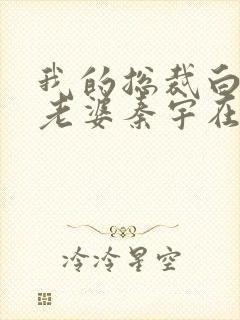 我的总裁白
老婆秦宇在
冷冷星空